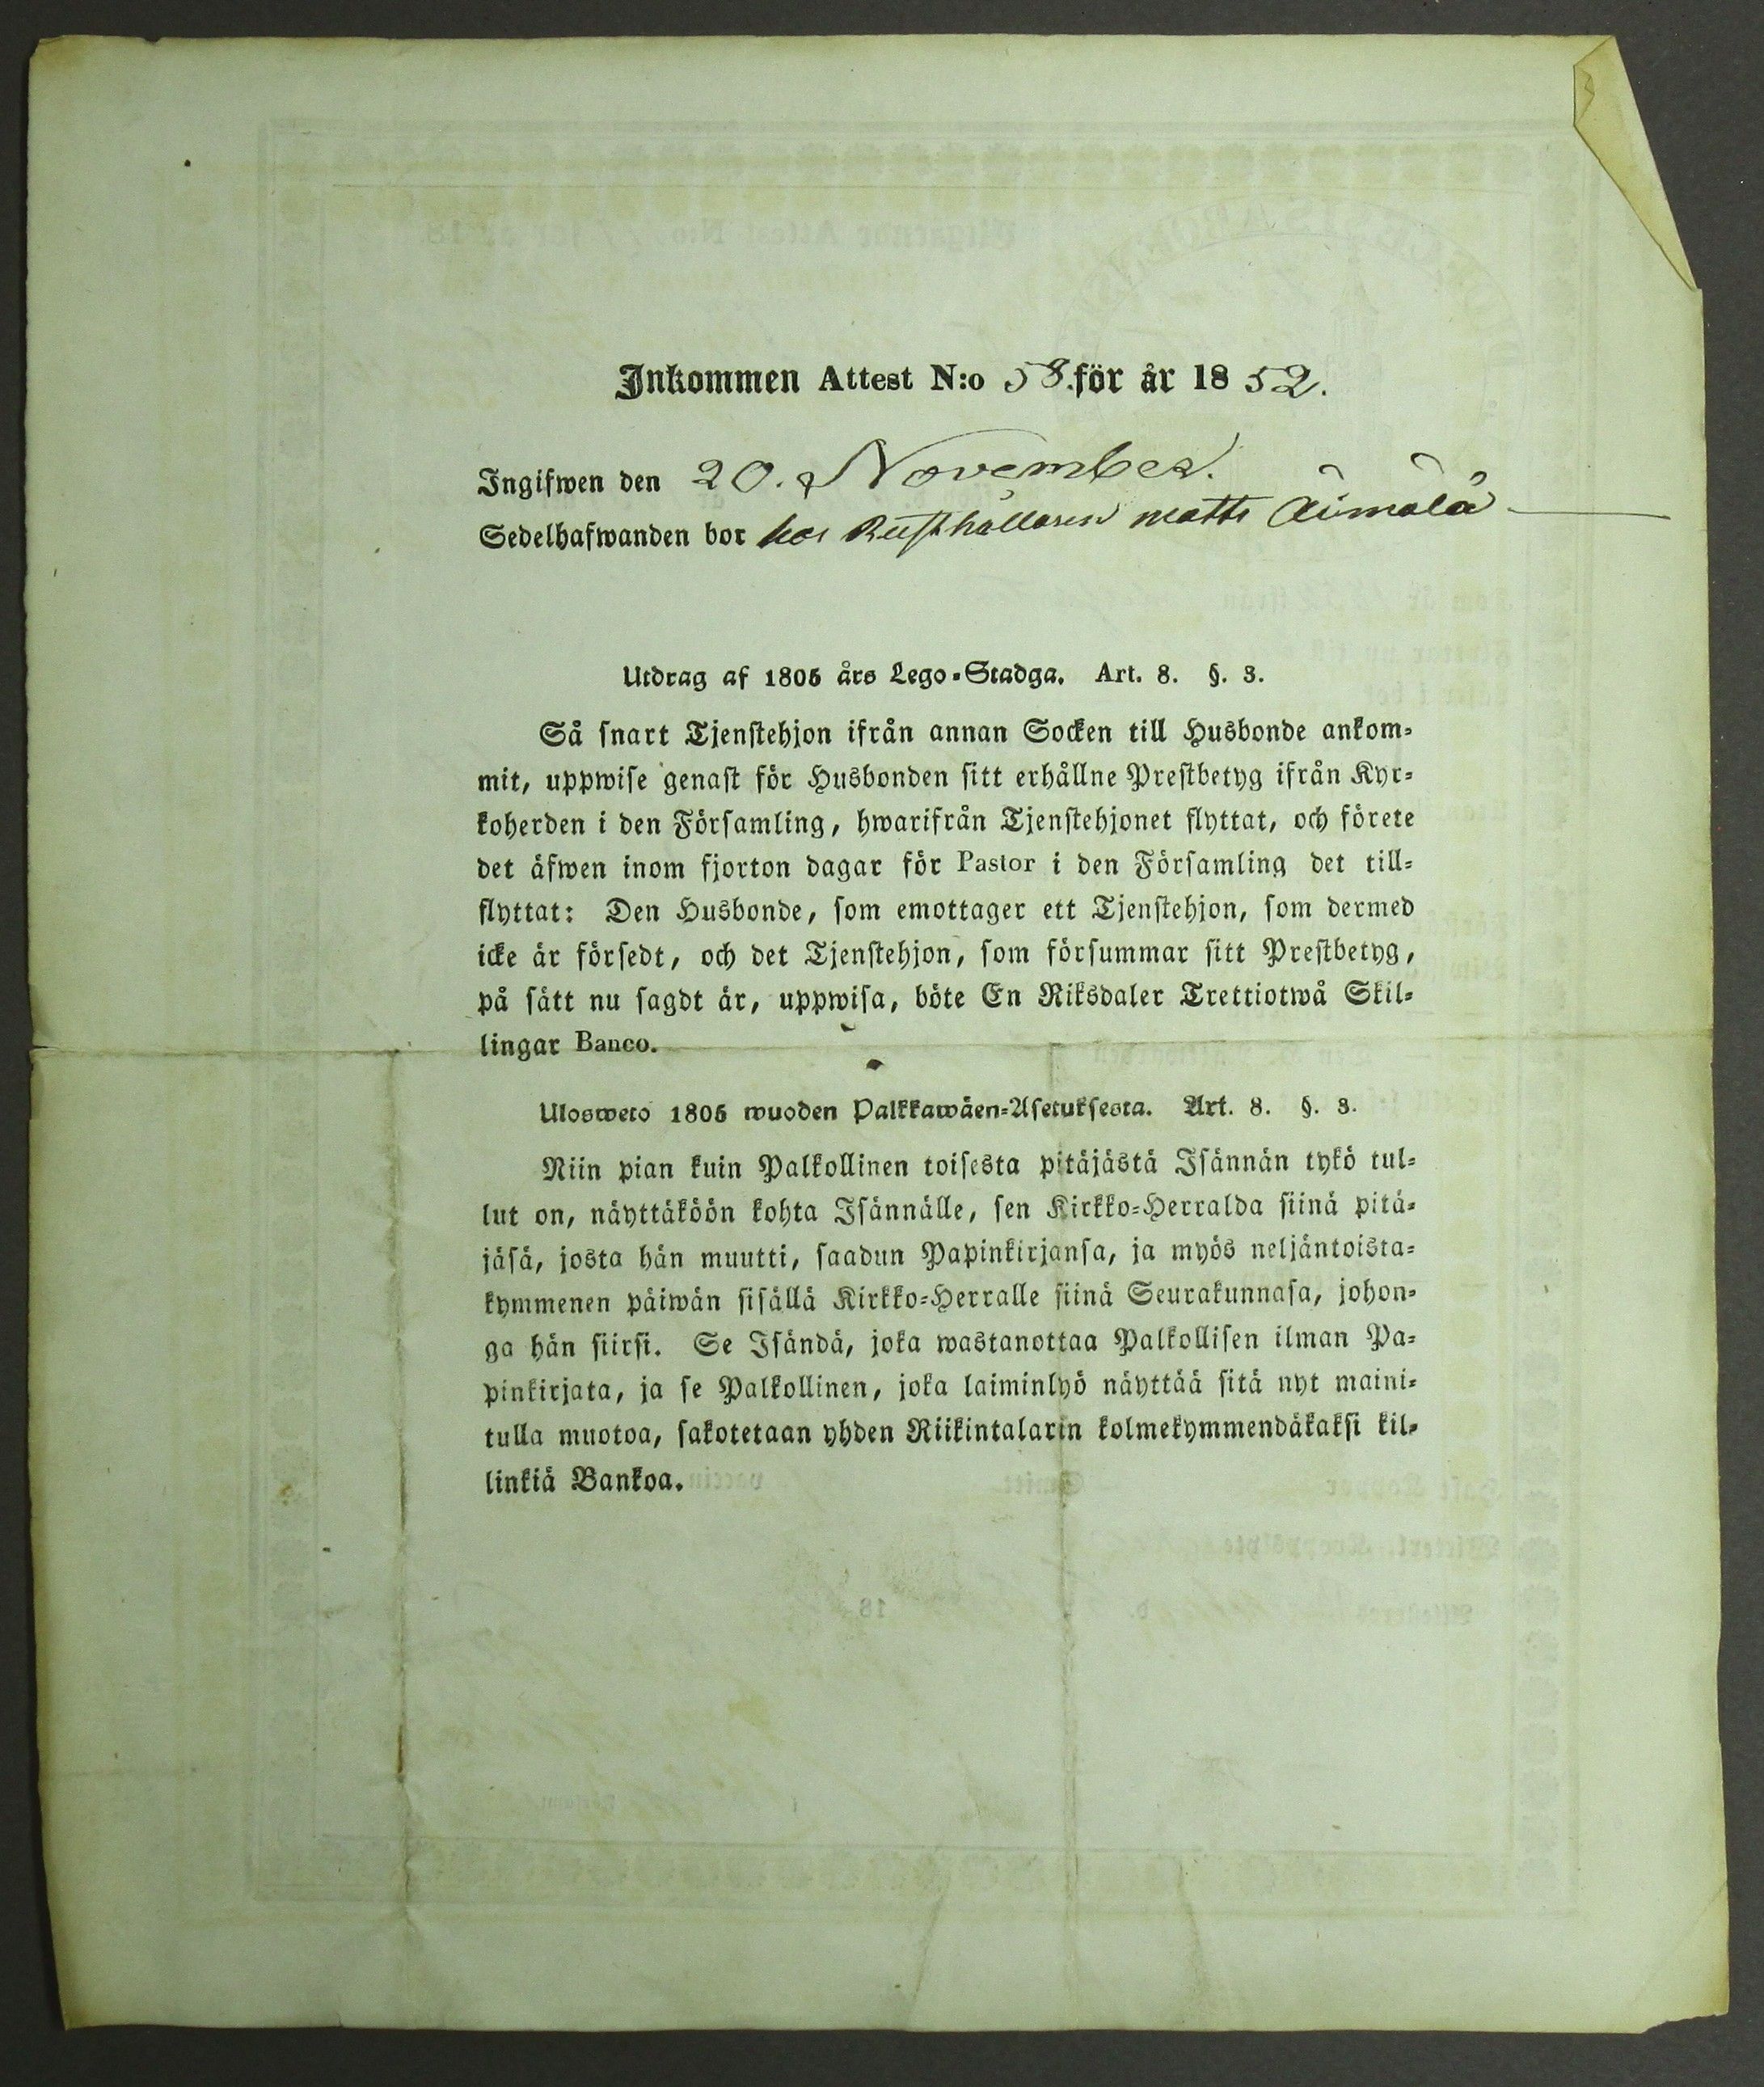 Inkommen Attest N:o 58. för år 1852.
Ingifwen den 20. November.
Sedelhafwanden bor hos Rusthållaren Matts Äimälä
Utdrag af 1805 års Lego-Stadga. Art. 8. §. 3.
Så snart Tjenstehjon ifrån annan Socken till Husbonde ankom-
mit, uppwise genast för Husbonden sitt erhållne Prestbetyg ifrån Kyr-
koherden i den Församling, hwarifrån Tjenstehjonet flyttat, och förete
det äfwen inom fjorton dagar för Pastor i den Församling det till-
flyttat: Den Husbonde, som emottager ett Tjenstehjon, som dermed
icke är försedt, och det Tjenstehjon, som försummar sitt Prestbetyg,
på sätt nu sagdt är, uppwisa, böte En Riksdaler Trettiotwå Skil-
lingar Banco.
Ulosweto 1805 wuoden Palkkawäen-Asetuksesta. Art. 8. §. 3.
Niin pian kuin Palkollinen toisesta pitäjästä Isännän tykö tul-
lut on, näyttäköön kohta Isännälle, sen Kirkko-Herralda siinä pitä-
jäsä, josta hän muutti, saadun Papinkirjansa, ja myös neljäntoista-
kymmenen päiwän sisällä Kirkko-Herralle siinä Seurakunnasa, johon-
ga hän siirsi. Se Isändä, joka wastanottaa Palkollisen ilman Pa-
pinkirjata, ja se Palkollinen, joka laiminlyö näyttää sitä nyt maini-
tulla muotoa, sakotetaan yhden Riikintalarin kolmekymmendäkaksi kil-
linkiä Bankoa.